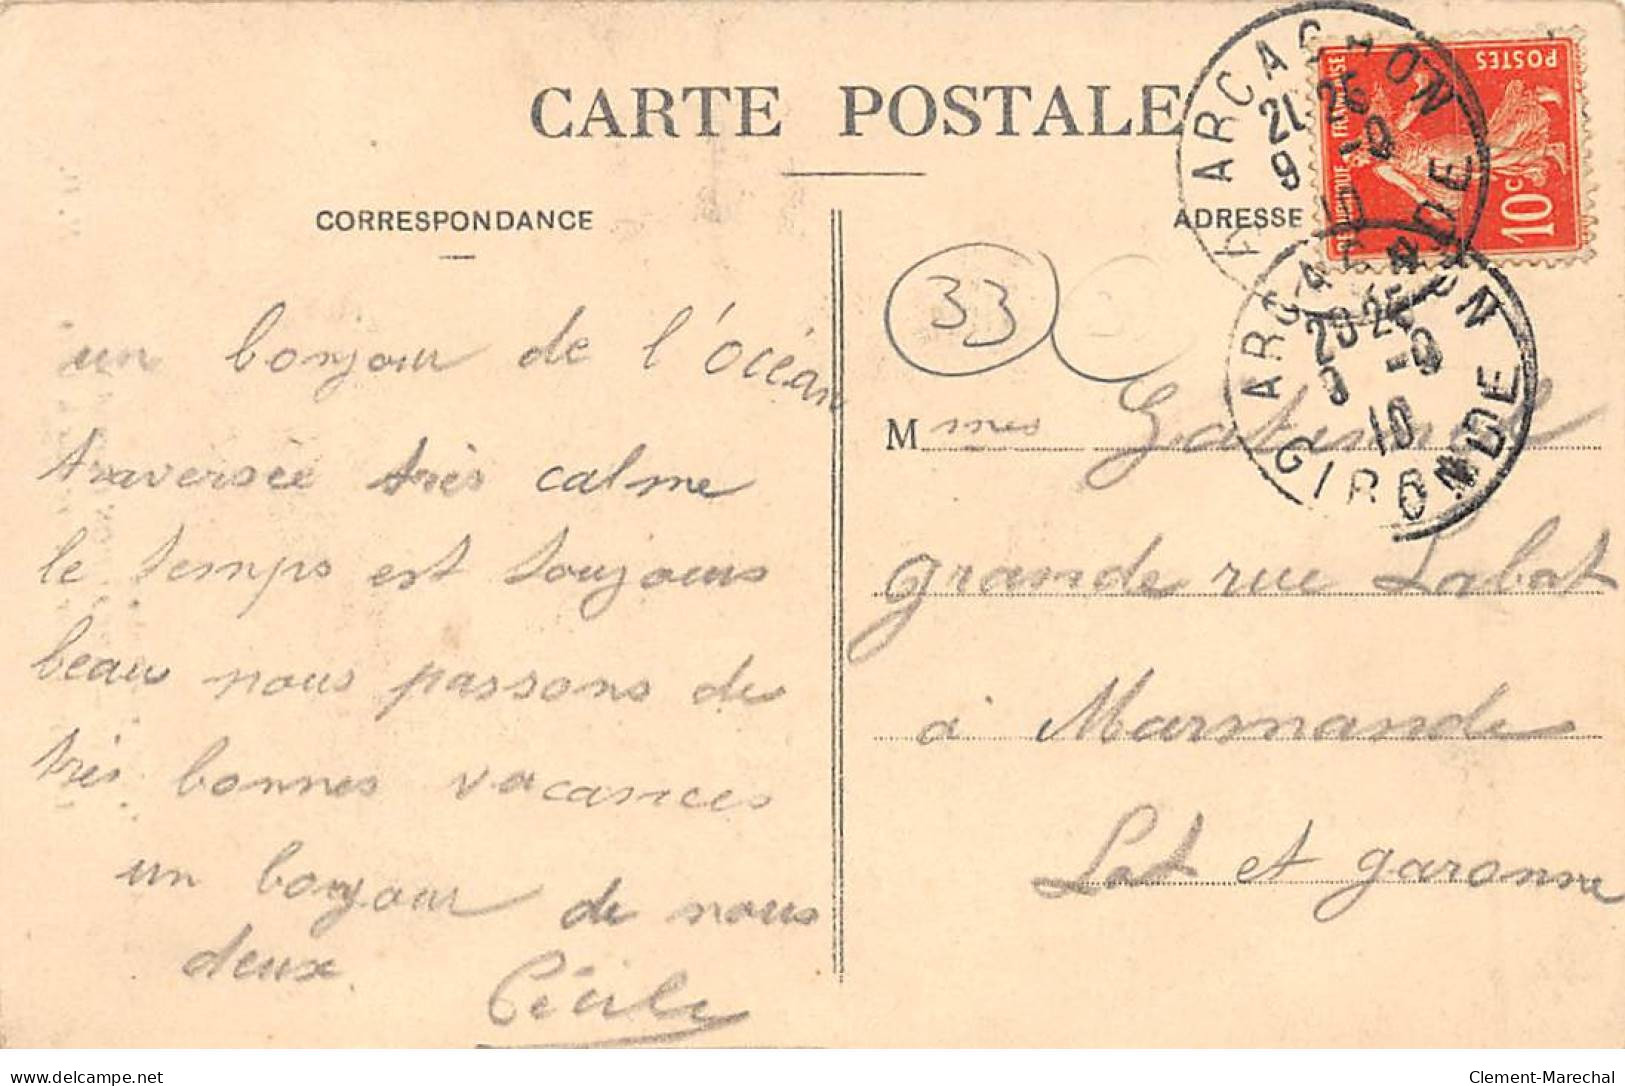 CARTE POSTALE
CORRESPONDANCE
un bonjour de l'océan
traversée très calme
le temps est toujours
beau nous passons de
très bonnes vacances
un bonjour de nous
deux
Cécile
ADRESSE
33
M mes
grande rue Labat
à Marmande
Lot et garonne
ARCACHON
21 25
9 -9
10
GIRONDE
ARCACHON
20 25
9 -9
10
GIRONDE
REPUBLIQUE FRANÇAISE
POSTES
10c
delcampe.net
Clement-Marechal